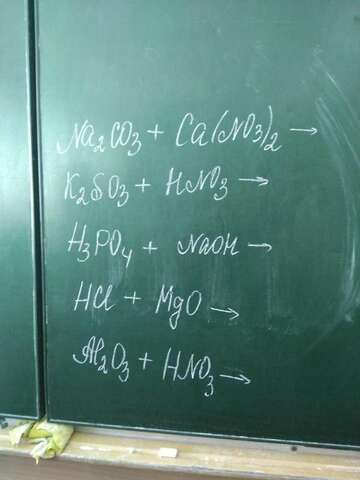 Na₂CO₃ + Ca(NO₃)₂ →
K₂SO₃ + HNO₃ →
H₃PO₄ + NaOH →
HCl + MgO →
Al₂O₃ + HNO₃ →